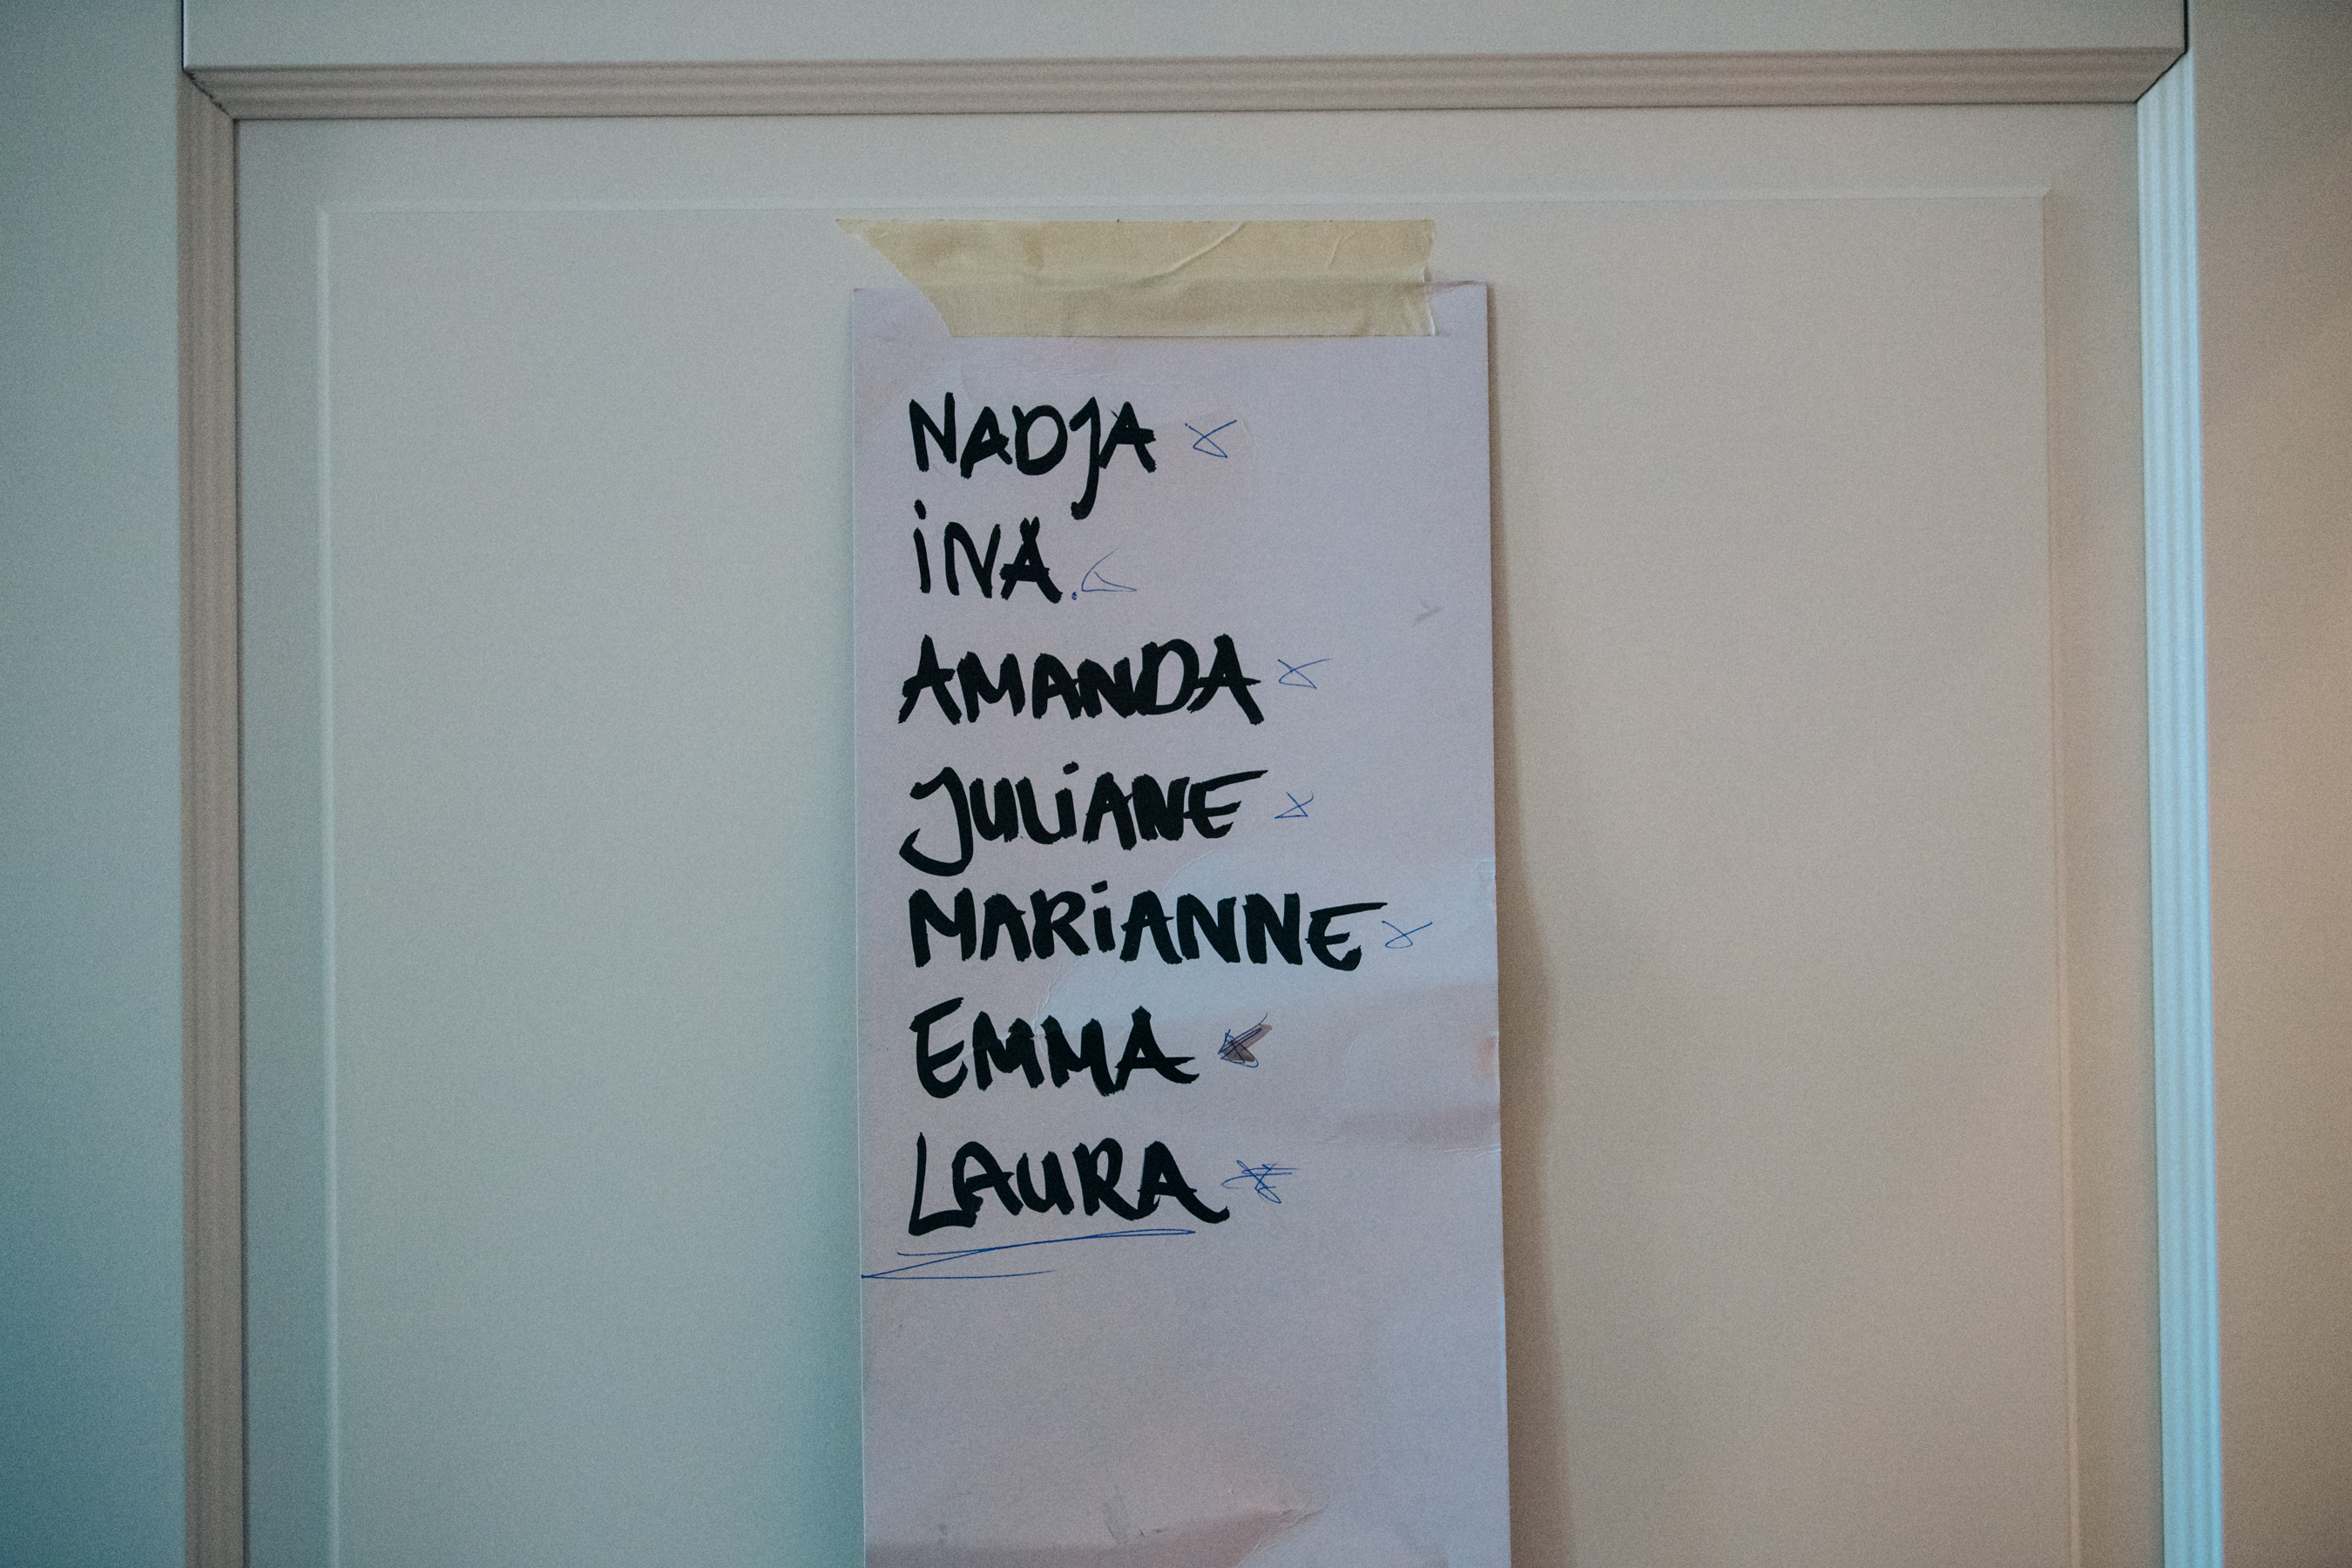 NADJA x
iNA
AMANDA x
JULiANE x
MARiANNE x
EMMA x
LAURA x